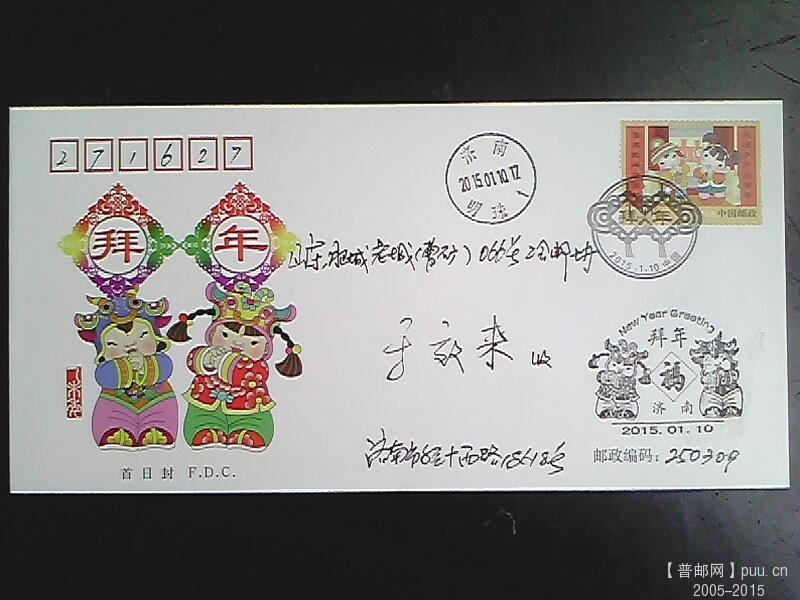 271627
济南
2015.01.10.17
明珠
中国邮政
拜年
2015.1.10 中国
拜年
山东肥城老城(曹矿)066号
收
New Year Greeting
拜年
福
济南
2015.01.10
济南市经十西路18618号
邮政编码:250309
首日封 F.D.C.
【普邮网】puu.cn
2005-2015